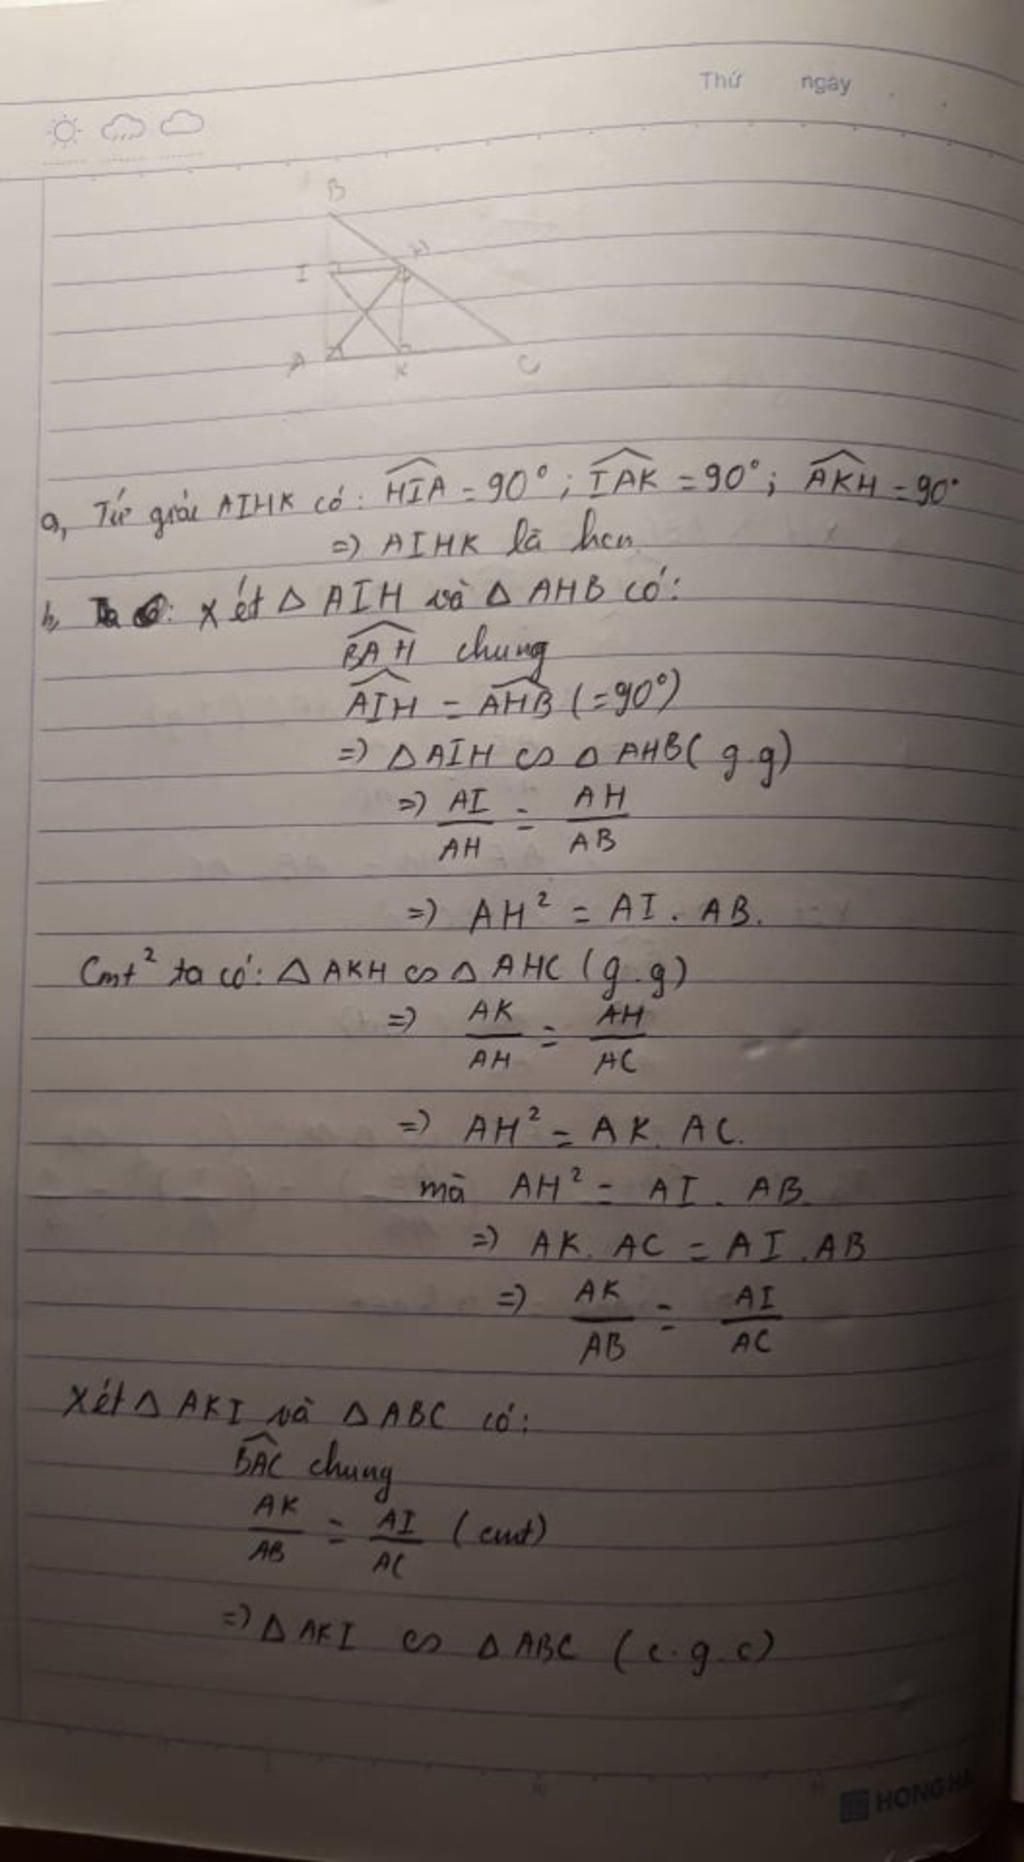 Thứ ngày
B
I H
A K C
a, Tứ giác AIHK có: \widehat{HIA} = 90°; \widehat{IAK} = 90°; \widehat{AKH} = 90°
=) AIHK là hcn
b, Xét Δ AIH và Δ AHB có:
\widehat{BAH} chung
\widehat{AIH} = \widehat{AHB} (=90°)
=) Δ AIH ∽ Δ AHB (g.g)
=) \frac{AI}{AH} = \frac{AH}{AB}
=) AH² = AI . AB.
Cmt² ta có: Δ AKH ∽ Δ AHC (g.g)
=) \frac{AK}{AH} = \frac{AH}{AC}
=) AH² = AK. AC.
mà AH² = AI . AB.
=) AK. AC = AI . AB
=) \frac{AK}{AB} = \frac{AI}{AC}
Xét Δ AKI và Δ ABC có:
\widehat{BAC} chung
\frac{AK}{AB} = \frac{AI}{AC} (cmt)
=) Δ AKI ∽ Δ ABC (c.g.c)
HONG HA